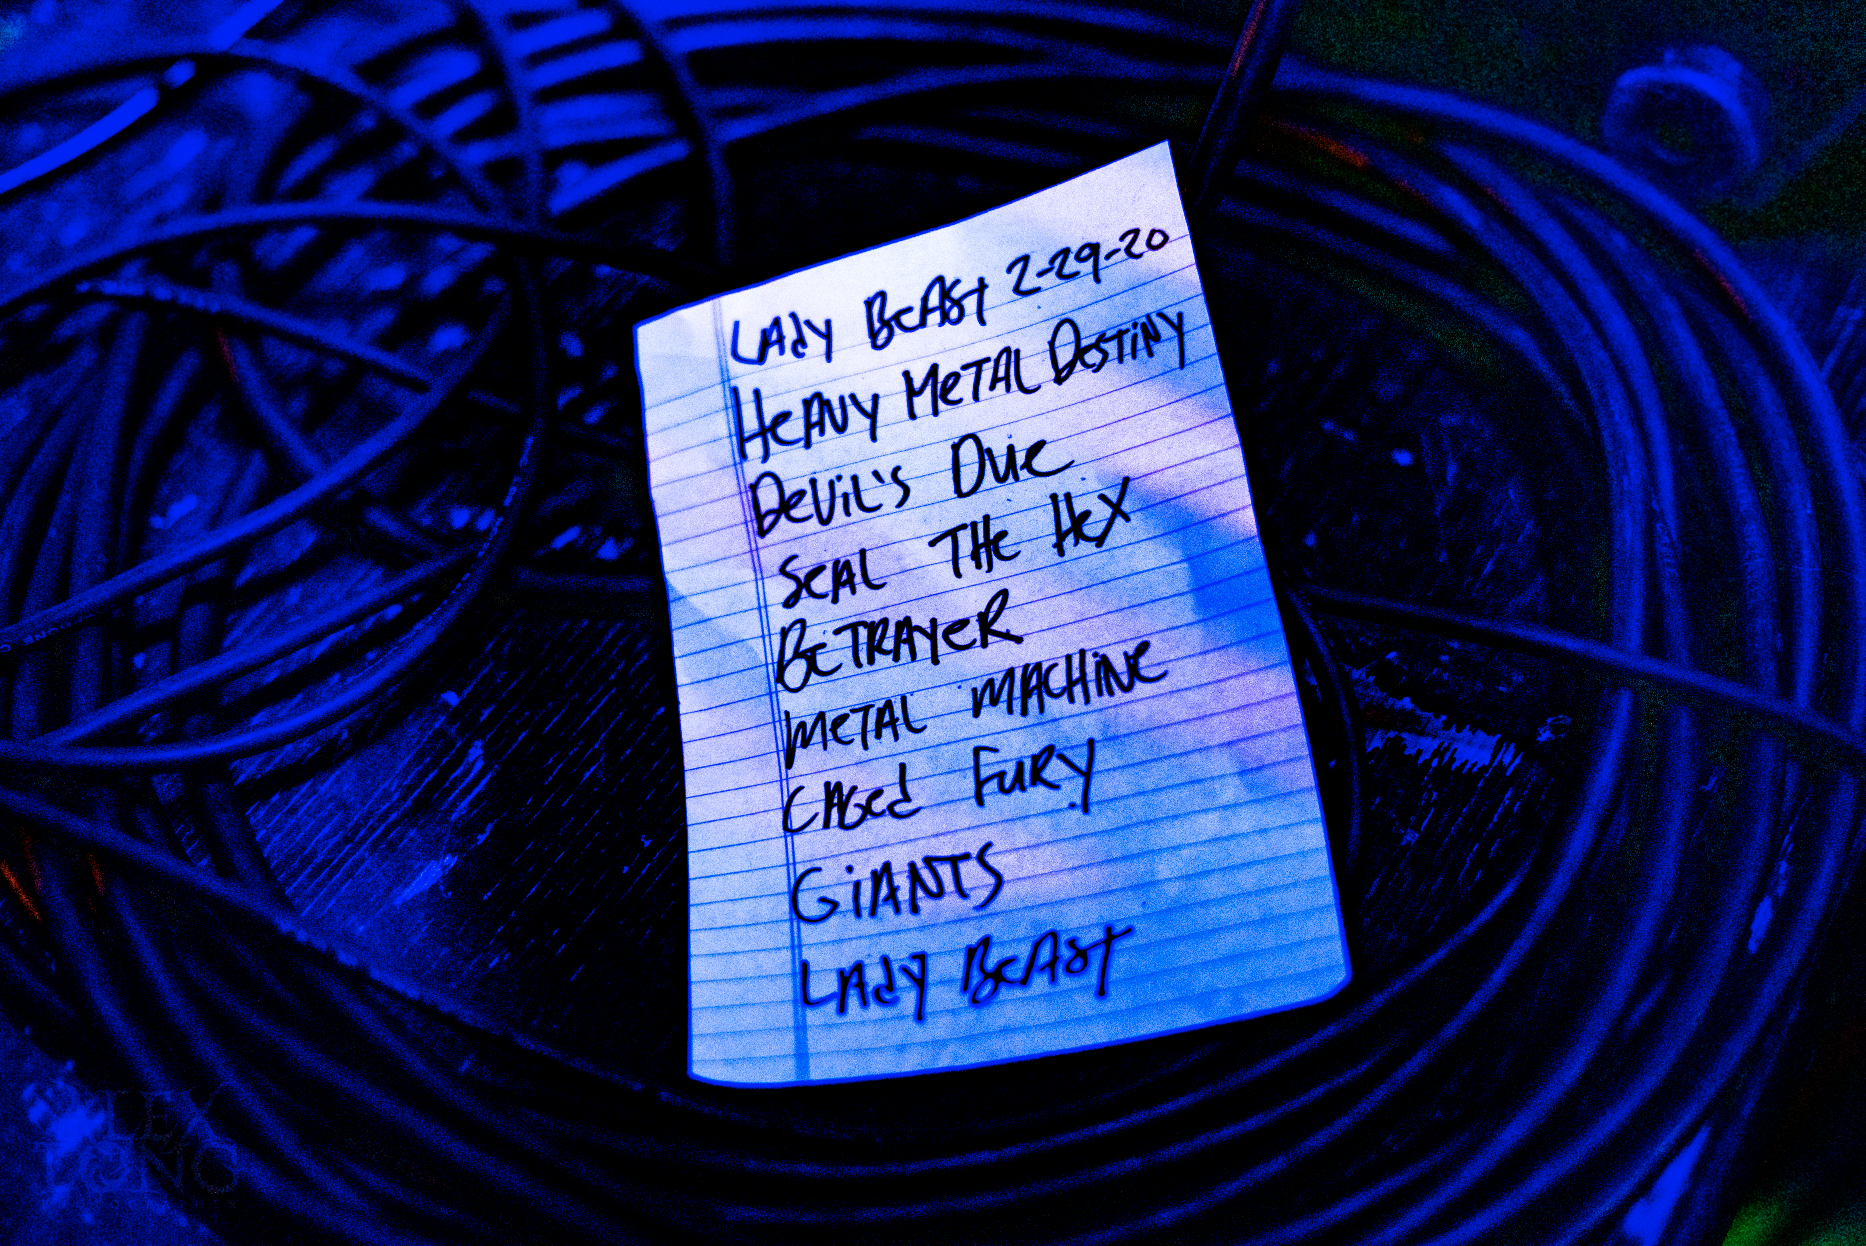 LAdy BeAst 2-29-20
HeAVy MeTAL DesTiNy
DeViL's Due
SeAL THe HeX
BeTRAyeR
MeTAL MACHiNe
CAGed FuRy
GiANTS
LAdy BeAsT
ALEX
LONG